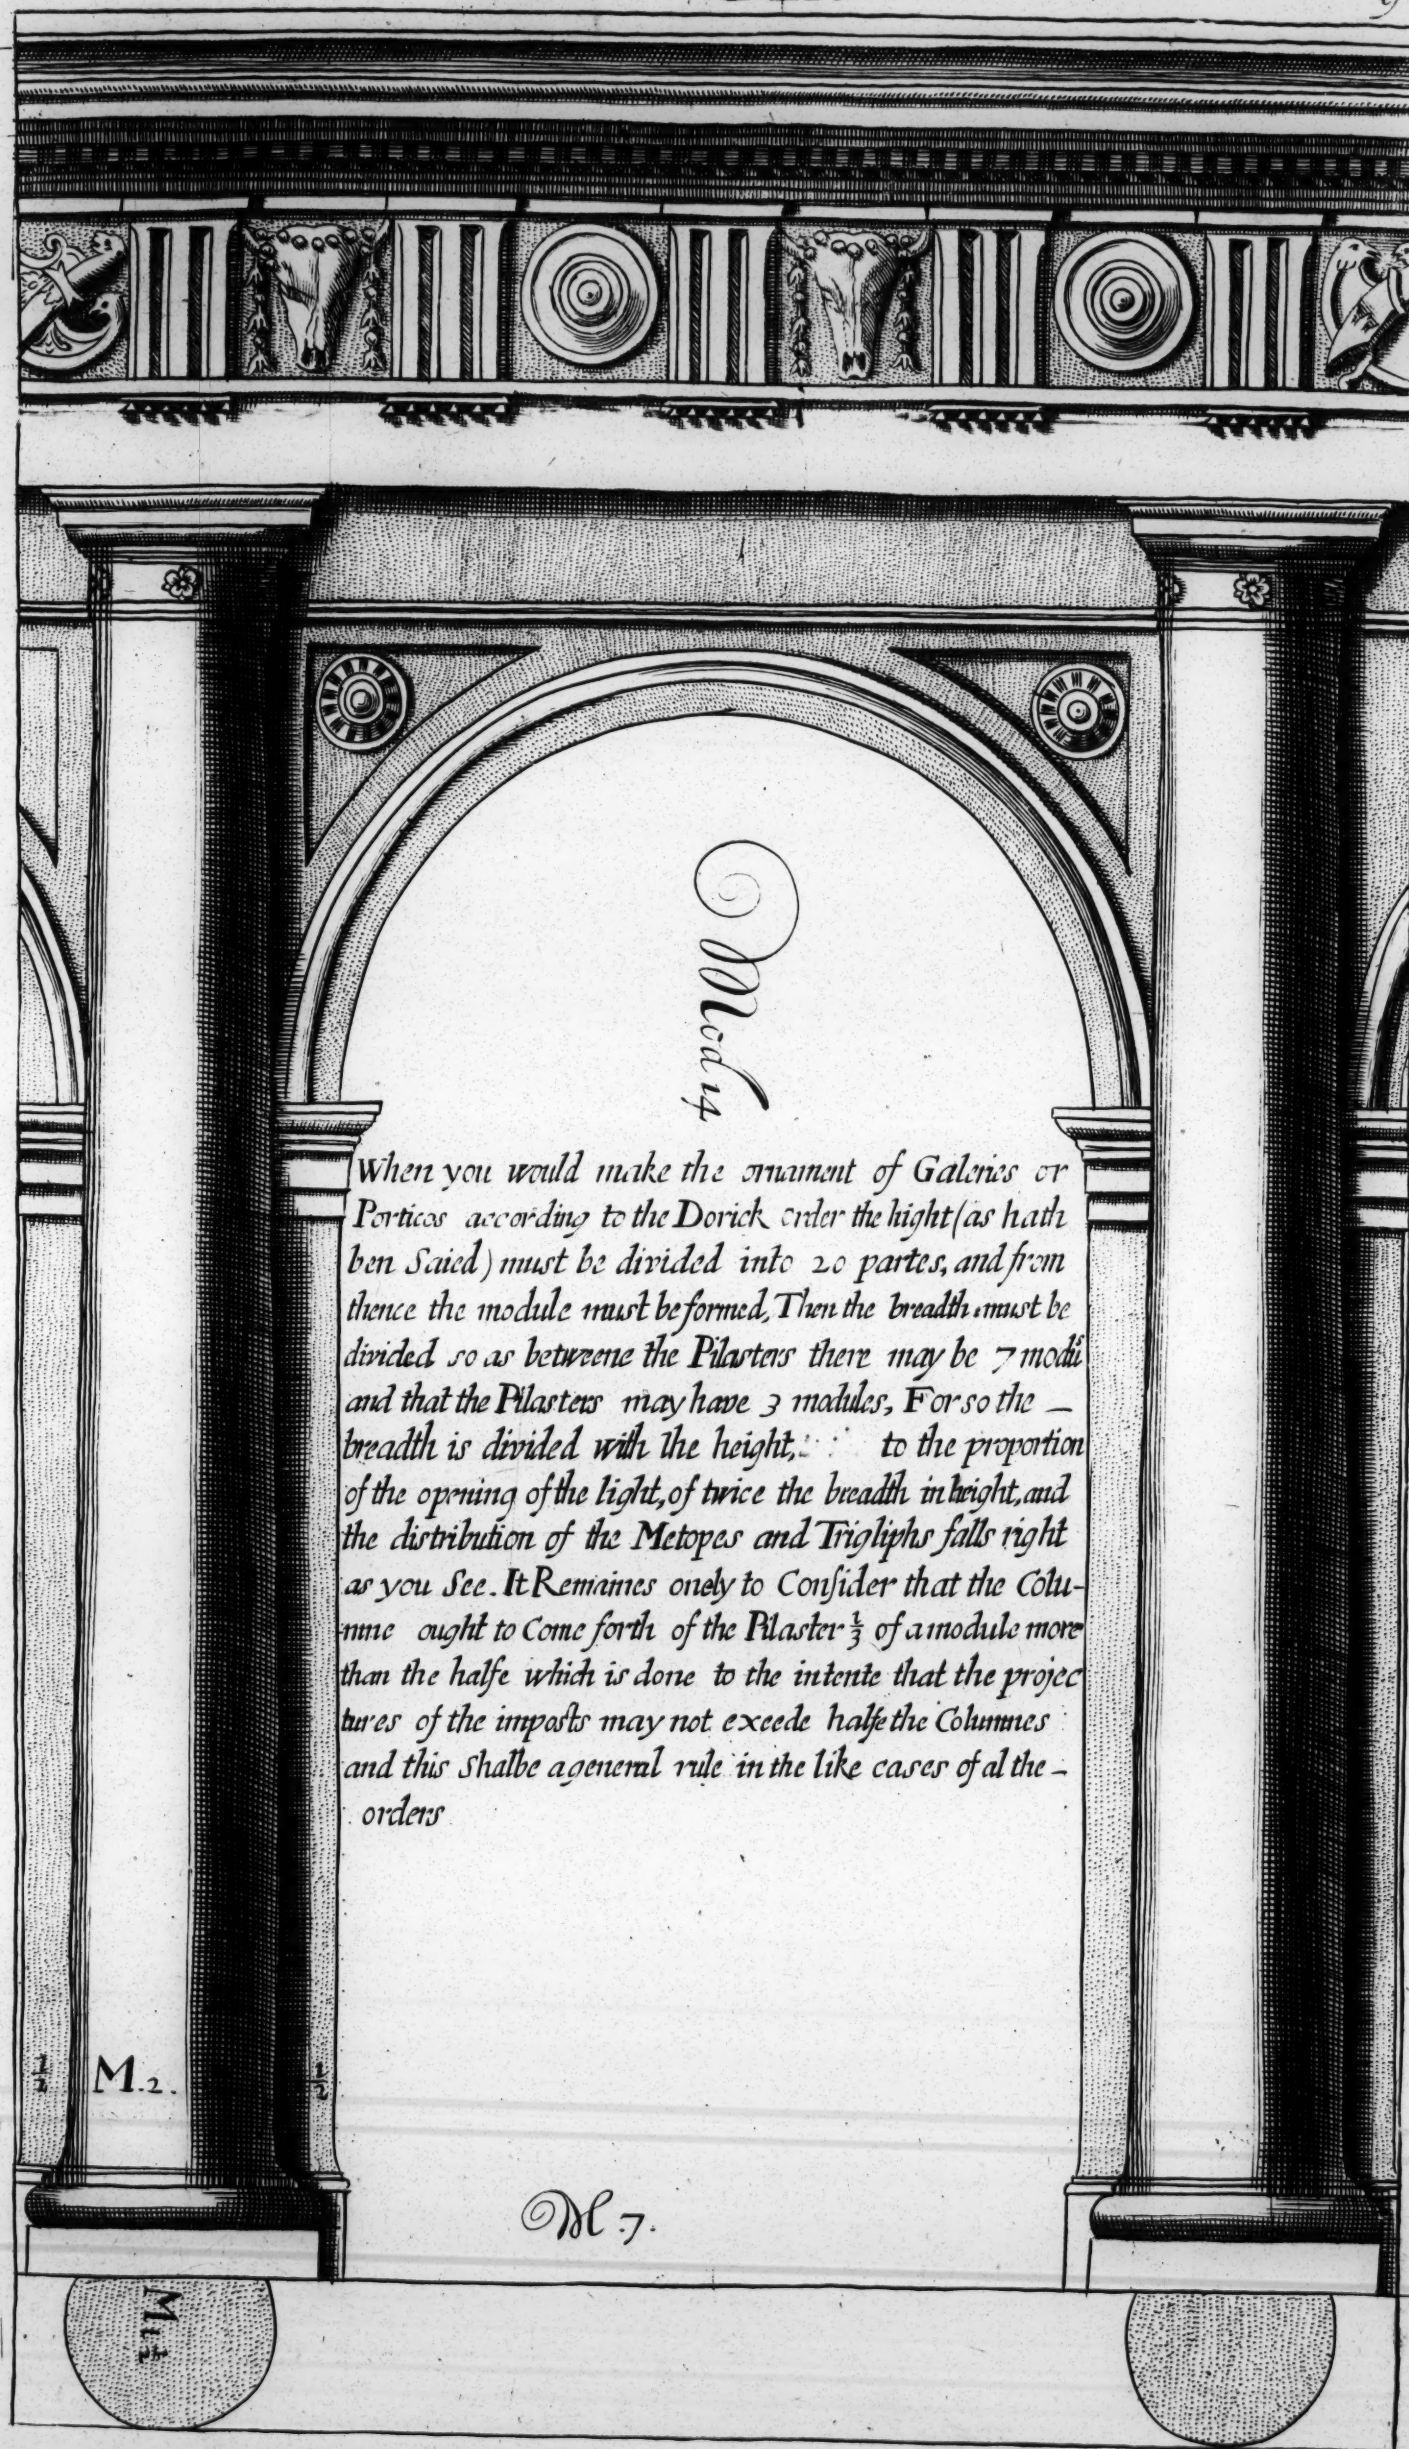 9
Mod 14
When you would make the ornament of Galeries or
Porticos according to the Dorick order the hight (as hath
ben Saied) must be divided into 20 partes, and from
thence the module must be formed, Then the breadth must be
divided so as betweene the Pilasters there may be 7 modus
and that the Pilasters may have 3 modules, For so the _
breadth is divided with the height, to the proportion
of the opening of the light, of twice the breadth in height, and
the distribution of the Metopes and Trigliphs falls right
as you See. It Remaines onely to Consider that the Colu-
mne ought to Come forth of the Pilaster ⅓ of a module more
than the halfe which is done to the intente that the projec
tures of the imposts may not exeede halfe the Columnes
and this Shalbe a general rule in the like cases of al the _
orders
½ M.2. ½
M.7.
M 1½